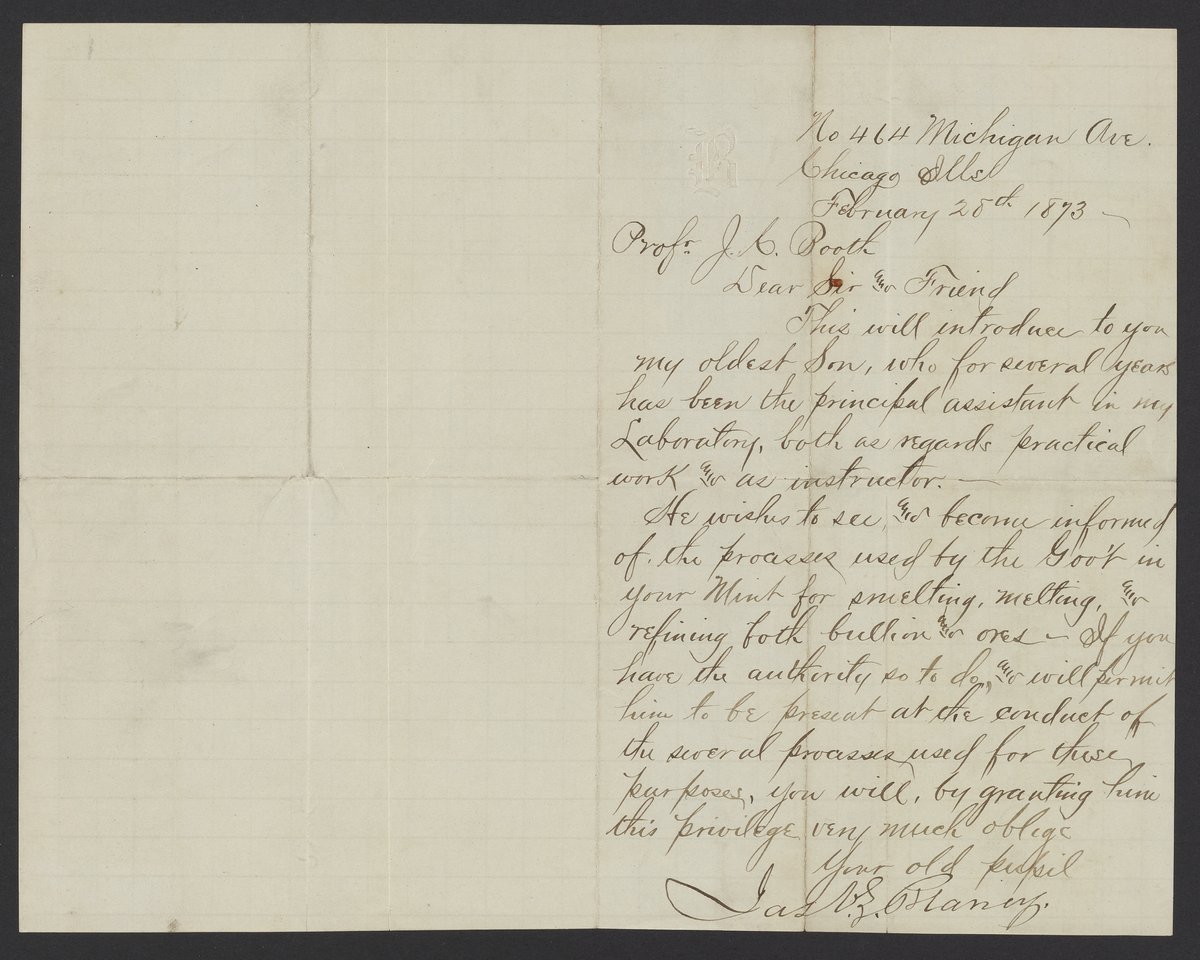 B
No 464 Michigan Ave.
Chicago Ills
February 28th 1873 —
Profr. J. C. Booth
Dear Sir & Friend
This will introduce to you
my oldest Son, who for several years
has been the principal assistant in my
Laboratory, both as regards practical
work & as instructor. —
He wishes to see, & become informed
of the processes used by the Gov't in
your Mint for smelting, melting, &
refining both bullion & ores — If you
have the authority so to do, & will permit
him to be present at the conduct of
the several processes used for these
purposes, you will, by granting him
this privilege very much oblige
Your old pupil
Jas V. Z. Blaney.